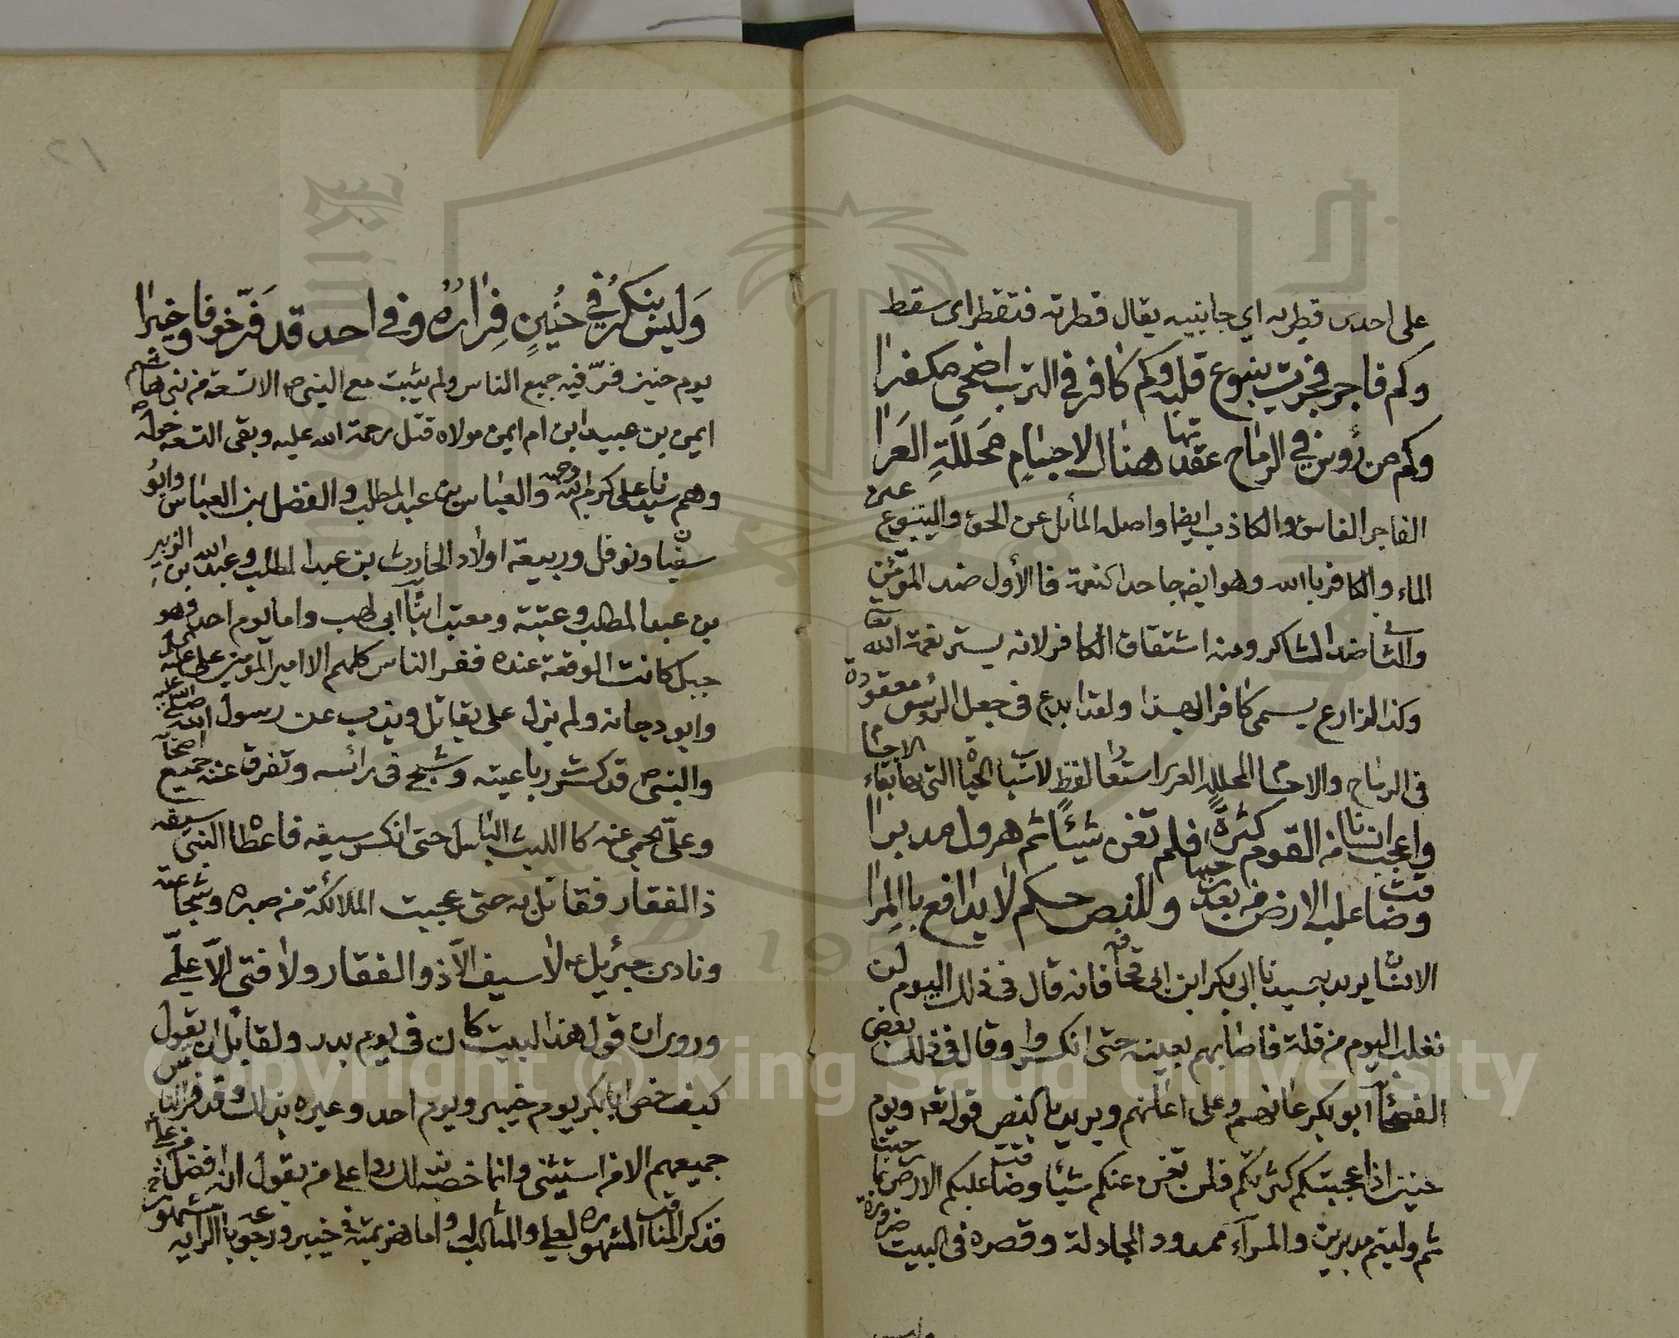 على احدى قطريه اي جانبيه يقال قطرته فتقطر اى سقط
وكم فاجر فجرت ينبوع قلبه وكم كافر في الترب اضحى مكفرا
وكم من رؤس في الرماح عقدتها هناك لاجسام محللة العرا
الفاجر الفاسق والكاذب ايضا واصله المائل عن الحق والينبوع عين
الماء والكافر باالله وهو ايضا جاحد النعمة فالأول ضد المؤمن
والثاني ضد الشاكر ومنه اشتقاق الكافر لانه يستر نعمة الله تعالى
وكذا الزارع يسمى كافرا لهذا ولقد ابدع في جعل الرؤس معقودة
في الرماح والاجسام المحللة العرا استعار لفظ لاسباب الحياة التي بها بقاء الاجسام
واعجب انسانا من القوم كثرة فلم تغن شيئًا ثم هرول مدبرا
وضاقت عليه الارض من بعد رحبها وللنص حكم لا يدافع باالمرا
الانسان يريد به سيدنا ابى بكر ابن ابي قحافه فانه قال في ذلك اليوم لن
نغلب اليوم من قلة فاصابهم بعينه حتى انكسروا وقال في ذلك بعض
الفصحاء ابو بكر عانهم وعلى اعانهم ويريد باالنص قوله تعالى ويوم
حنين اذا عجبتكم كثرتكم فلن تغن عنكم شيئا وضاقت عليكم الارض بما رحبت
ثم وليتم مدبرين والمرآء ممدود المجادلة وقصره في البيت ضرورة
وليس
وليس ينكر في حنين فراره وفي احد قد فر خوفا وخيبرا
يوم حنين فرّ فيه جميع الناس ولم يثبت مع النبي ص الا تسعة من بنى هاشم
ايمن بن عبيد ابن ام ايمن مولاه قتل رحمة الله عليه وبقى التسعه حوله
وهم سيدنا على كرم الله وجهه والعباس بن عبد المطلب والفضل بن العباس وابو
سفيان ونوفل وربيعة اولاد الحارث بن عبد المطلب وعبد الله بن الزبير
بن عبد المطلب وعتبة ومعتب ابنآ ابى لهب واما يوم احد وهو
جبل كانت الوقعة عنده ففر الناس كلهم الا امير المؤمنين على
وابو دجانه ولم يزل على يقاتل ويذب عن رسول الله صلى الله عليه
والنبي ص قد كسرت رباعيته وشج في رائسه وتفرق عنه جميع اصحابه
وعلىّ يحمي عنه كا الليث الباسل حتى انكسر سيفه فاعطاه النبي سيفه
ذا الفقار فقاتل به حتى عجبت الملائكة من صبره وشجاعته
ونادى جبرئيل ع لا سيف الّا ذو الفقار ولا فتى الّا علىّ
وروى ان قول هذا البيت كان في يوم بدر ولقائل ان يقول
كيف خص ابا بكر يوم خيبر ويوم احد وغيره بذلك وقد فر الناس
جميعهم الا من استثنى وانما خصه لك ردا على من يقول انه افضل من علي
فذكر المناقب المشهوره لعلي والمثالب له واما هزيمته في خيبر ورجوعه باالرايه